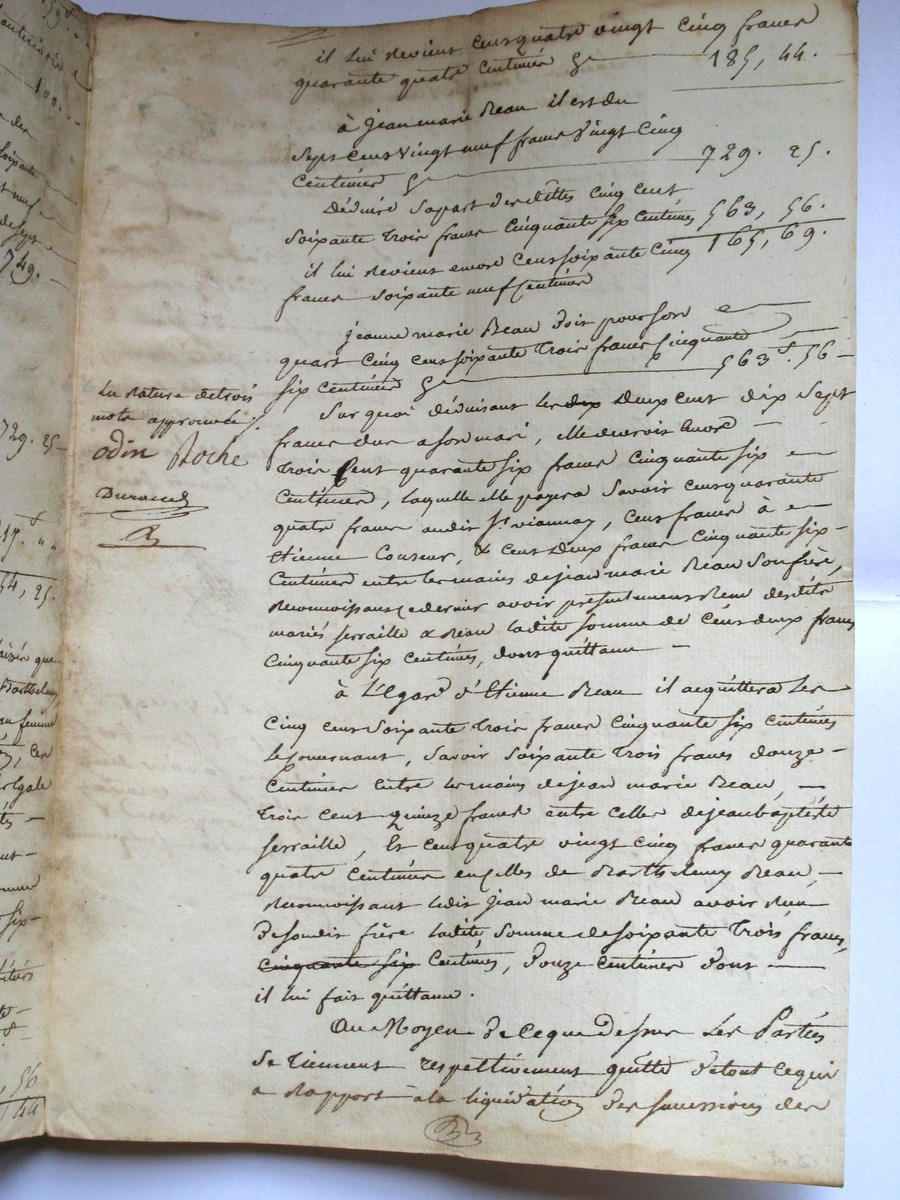 il lui revient cent quatre vingt cinq francs
quarante quatre centimes 185, 44.
à jean marie Reau il est du
sept cent vingt neuf francs vingt cinq
centimes 729. 25.
Déduire sa part des dettes cinq cent
soixante trois francs cinquante six centimes 563, 56.
il lui revient encore cent soixante cinq 165, 69.
francs soixante neuf centimes
jeanne marie Reau doit pour son
quart cinq cent soixante trois francs cinquante
six centimes 563f. 56
Sur quoi déduisant les dix Deux cent dix sept
francs dus a son mari, elle devroit encore
trois cent quarante six francs cinquante six
centimes, laquelle elle payera savoir cent quarante
quatre francs audit Sr. viannay, cent francs à
Etienne Couseur, & cent deux francs cinquante six
centimes entre les mains de jean marie Reau son frère,
Reconnoissant ce dernier avoir présentement Recu desdits
mariés serraille & Reau ladite somme de cent deux francs
cinquante six centimes, dont quittance
à L'Egard d'Etienne Reau il acquittera Les
cinq cent soixante trois francs cinquante six centimes
le concernant, savoir soixante trois francs douze
centimes entre les mains de jean marie Reau,
Trois cent quinze francs entre celles de jean baptiste
serraille, Et cent quatre vingt cinq francs quarante
quatre centimes en celles de Barthelemy Reau,
Reconnoissant ledit jean marie Reau avoir Recu
de sondit frère ladite somme de soixante trois francs,
cinquante six centimes, douze centimes dont
il lui fait quittance.
Au Moyen De ce que Dessus Les Parties
se tiennent respectivement quitte de tout ce qui
a Rapport à la liquidation des successions des
La rature de trois
mots approuvée
odin Roche
Durand